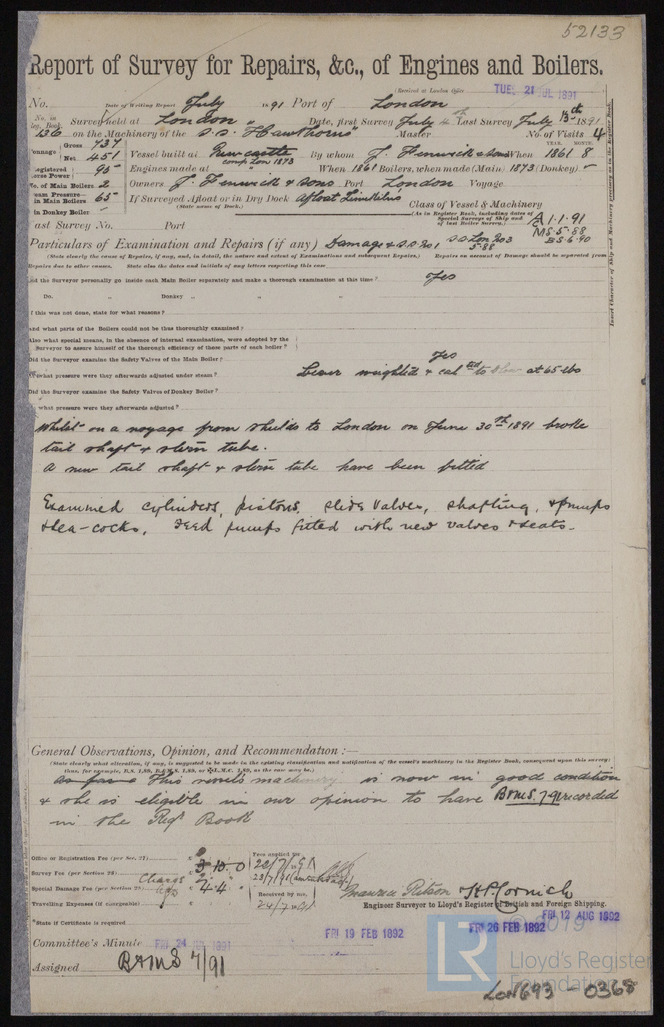 52133
Report of Survey for Repairs, &c., of Engines and Boilers.
(Received at London Office TUES. 21 JUL 1891
No. Date of Writing Report July 1891 Port of London
No. in Reg. Book. Survey held at London Date, first Survey July 4th Last Survey July 13th 1891
436 on the Machinery of the S.S. "Hawthorns" Master No. of Visits 4
Tonnage Gross 737 Net 451
Vessel built at Newcastle By whom J. Fenwick & Sons When 1861 8
YEAR. MONTH.
Registered Horse Power 95 Engines made at comp Lon 1873 When 1861 Boilers, when made (Main) 1873 (Donkey) -
No. of Main Boilers 2 Owners J. Fenwick & Sons Port London Voyage
Steam Pressure in Main Boilers 65 If Surveyed Afloat or in Dry Dock Afloat Limekilns
(State name of Dock.)
in Donkey Boiler
Class of Vessel & Machinery
(As in Register Book, including dates of Special Surveys of Ship and of last Boiler Survey.)
A 1.1.91
MS.5.88
BS.6.90
Last Survey No. Port
Particulars of Examination and Repairs (if any) Damage & S.S. No 1 SS Lon No3 5.88
(State clearly the cause of Repairs, if any, and, in detail, the nature and extent of Examinations and subsequent Repairs.) Repairs on account of Damage should be separated from
Repairs due to other causes. State also the dates and initials of any letters respecting this case
Did the Surveyor personally go inside each Main Boiler separately and make a thorough examination at this time? Yes
Do. " Donkey " " " "
If this was not done, state for what reasons?
And what parts of the Boilers could not be thus thoroughly examined?
Also what special means, in the absence of internal examination, were adopted by the
Surveyor to assure himself of the thorough efficiency of these parts of each boiler?
Did the Surveyor examine the Safety Valves of the Main Boiler? Yes
To what pressure were they afterwards adjusted under steam? Lever weighted & cal ted to blow at 65 lbs
Did the Surveyor examine the Safety Valves of Donkey Boiler?
To what pressure were they afterwards adjusted?
Whilst on a voyage from Shields to London on June 30th 1891 broke
tail shaft & stern tube.
A new tail shaft & stern tube have been fitted
Examined cylinders, pistons, slide valves, shafting, & pumps
& sea-cocks, Feed pumps fitted with new valves & seats.
General Observations, Opinion, and Recommendation:—
(State clearly what alteration, if any, is suggested to be made in the existing classification and notification of the vessel's machinery in the Register Book, consequent upon this survey;
thus, for example, B.S. 1,89, B.&M.S. 1,89, or L.M.C. 1,89, as the case may be.)
as far as This vessels machinery is now in good condition
& she is eligible in our opinion to have B&MS. 7.91 recorded
in the Regr Book
Office or Registration Fee (per Sec. 27) £
Survey Fee (per Section 28) £ 3.10.0
Special Damage Fee (per Section 28) £ 4.4.0
Charge
Travelling Expenses (if chargeable) £
Fees applied for
22/7/91
Received by me,
24/7/91
Maurice Ritson H.P. Cornish
Engineer Surveyor to Lloyd's Register of British and Foreign Shipping.
*State if Certificate is required
Committee's Minute FRI. 24 JUL 1891
FRI 19 FEB 1892
FRI 26 FEB 1892
FRI 12 AUG 1892
Assigned B&MS 7/91
© 2019
LR
Lloyd's Register
Foundation
LON693 - 0368
Insert Character of Ship and Machinery precisely as in the Register Book.